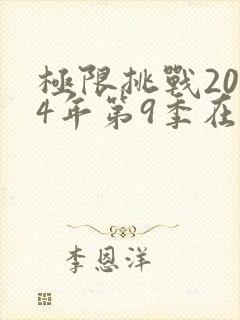 極限挑戰20
4年第9季在
李恩洋